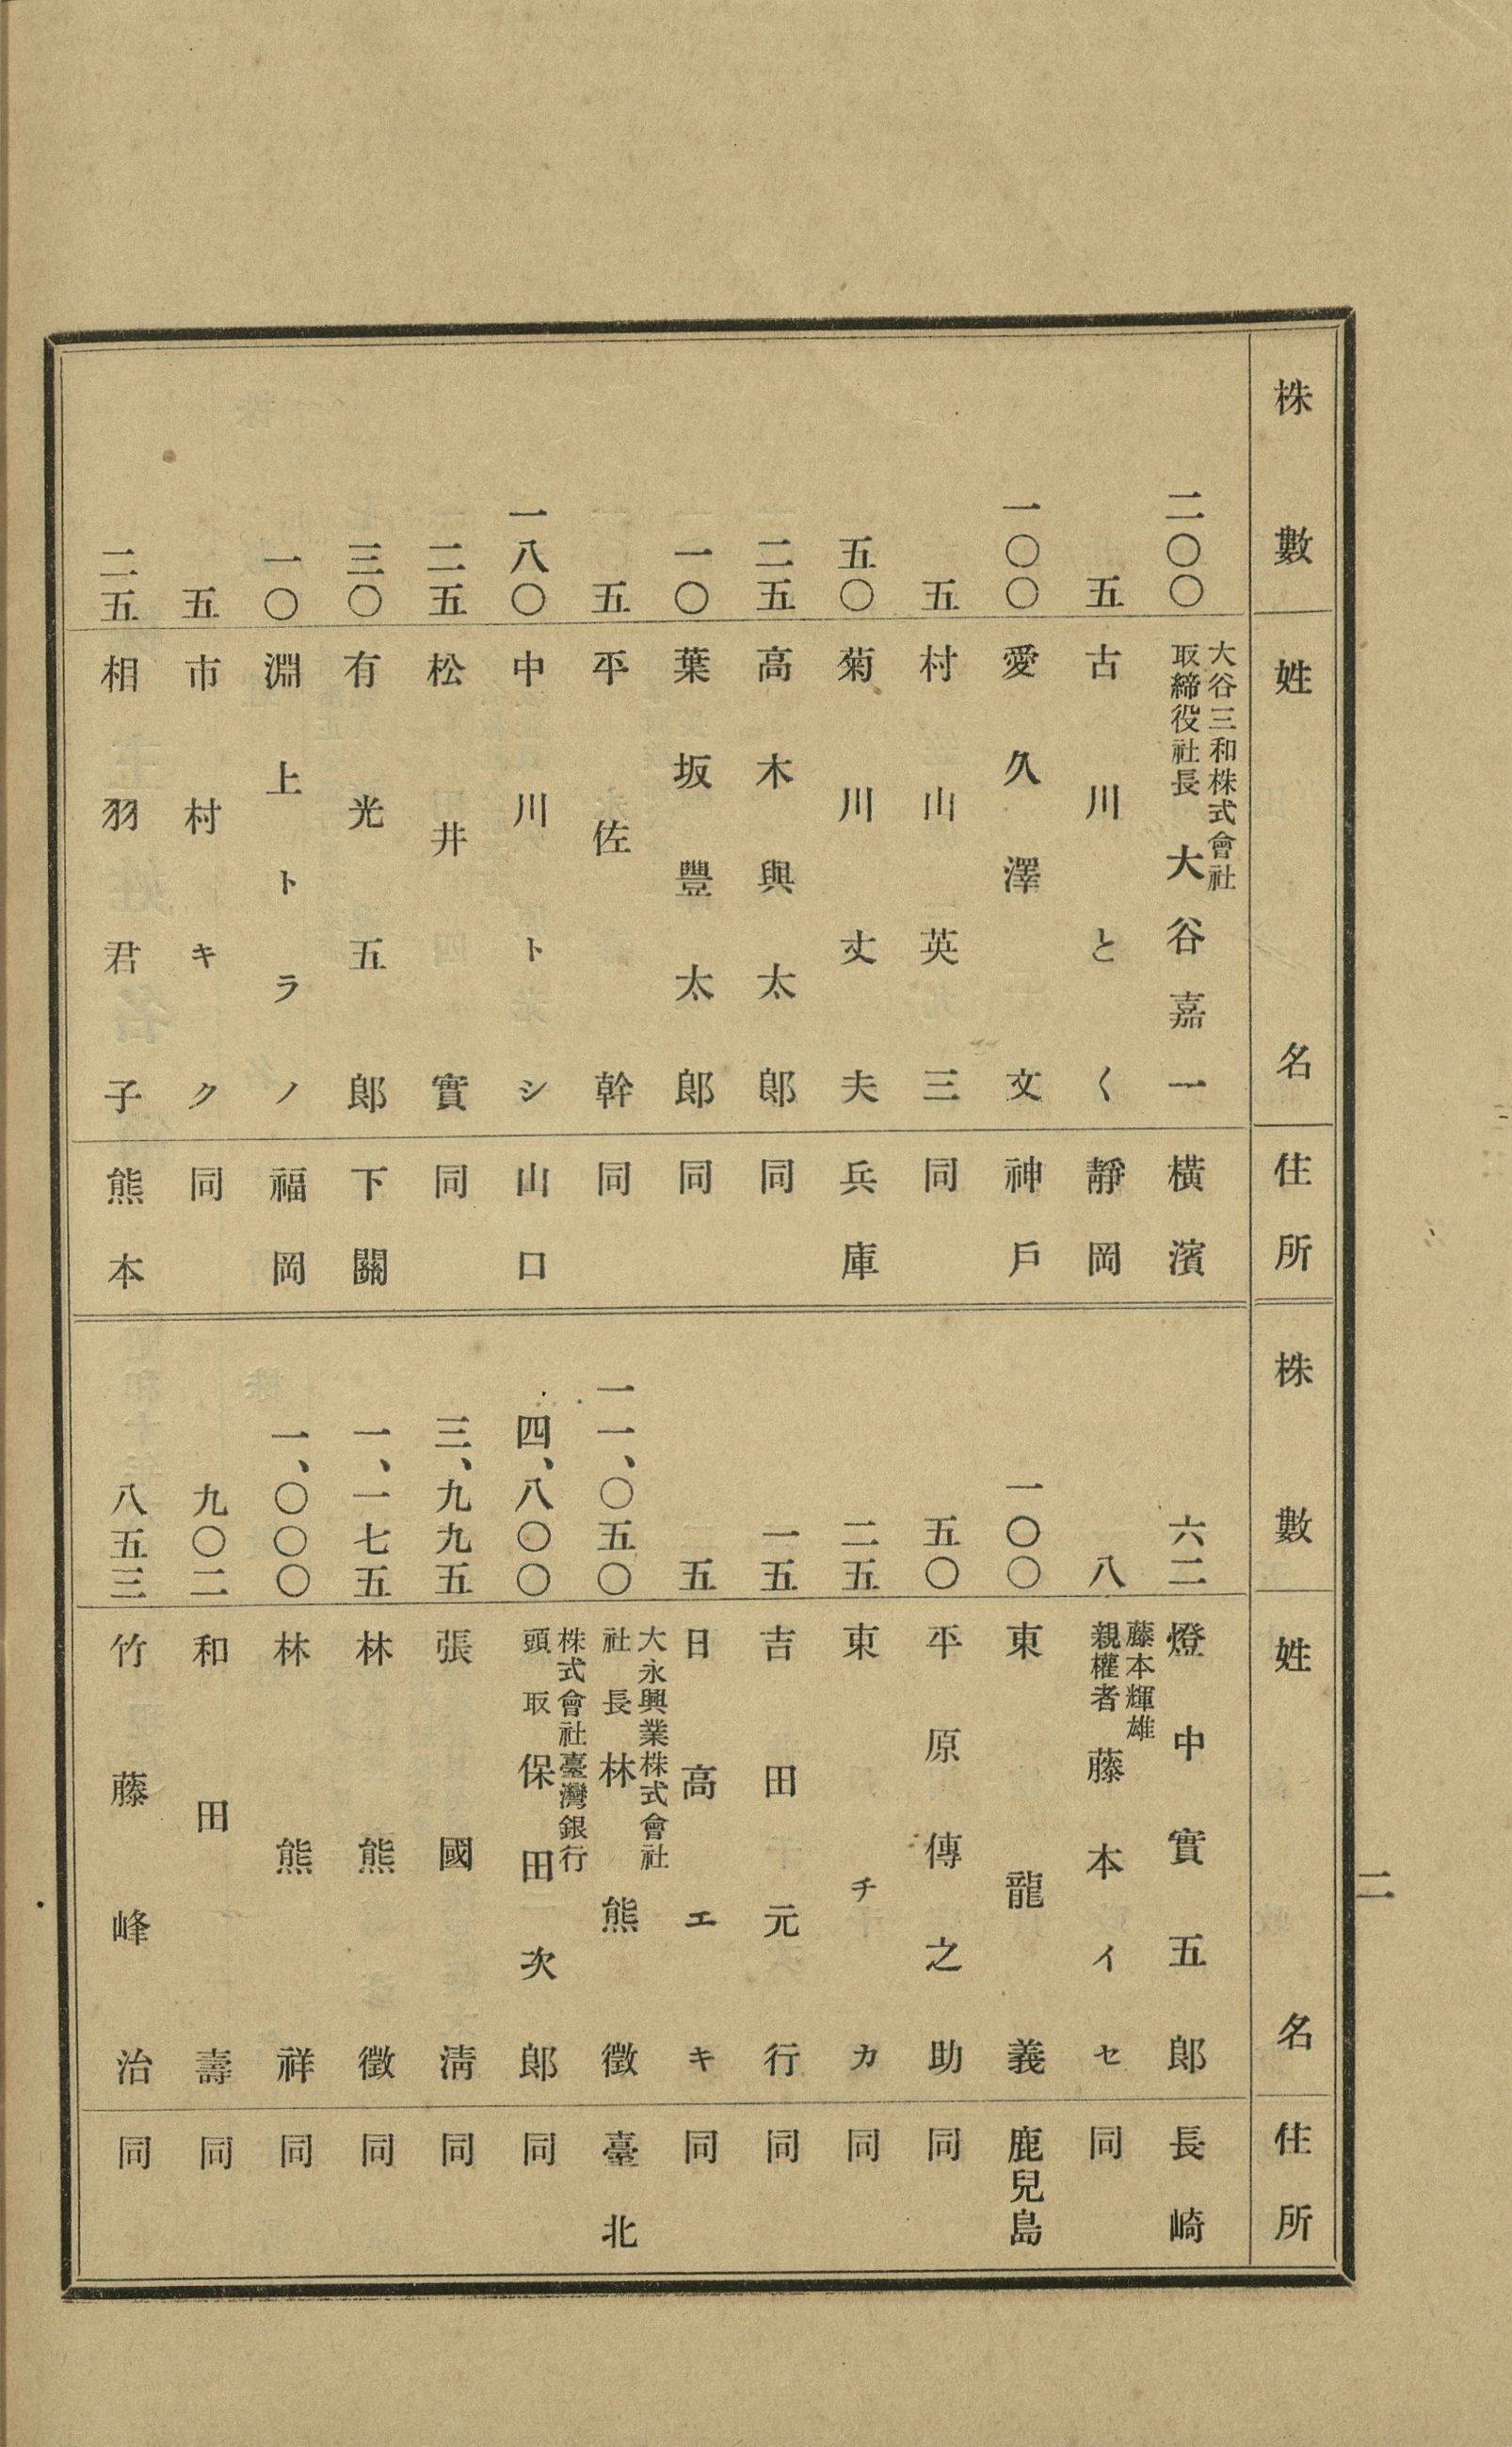 二
株數 姓名 住所
二〇〇 大谷三和株式會社取締役社長 大谷嘉一 橫濱
五 古川とく 靜岡
一〇〇 愛久澤文 神戶
五 村山英三 同
五〇 菊川丈夫 兵庫
二五 高木與太郞 同
一〇 葉坂豐太郞 同
五 平佐幹 同
一八〇 中川トシ 山口
二五 松井實 同
三〇 有光五郞 下關
一〇 淵上トラノ 福岡
五 市村キク 同
二五 相羽君子 熊本
株數 姓名 住所
六二 燈中實五郞 長崎
八 藤本輝雄親權者 藤本イセ 同
一〇〇 東龍義 鹿兒島
五〇 平原傳之助 同
二五 東チカ 同
一五 吉田元行 同
五 日高エキ 同
一一、〇五〇 大永興業株式會社社長 林熊徵 臺北
四、八〇〇 株式會社臺灣銀行頭取 保田次郞 同
三、九九五 張國淸 同
一、一七五 林熊徵 同
一、〇〇〇 林熊祥 同
九〇二 和田壽 同
八五三 竹藤峰治 同